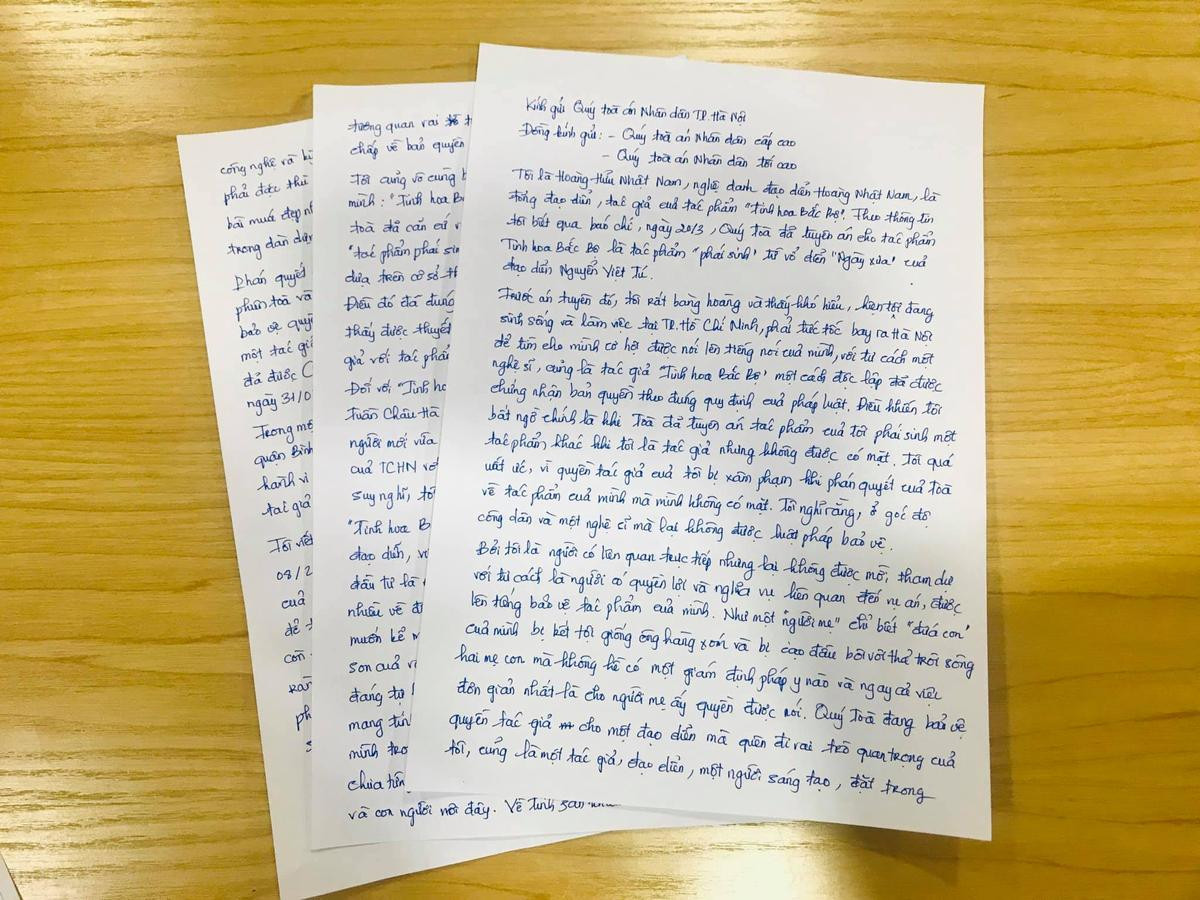 Kính gửi Quý toà án Nhân dân TP. Hà Nội
Đồng kính gửi: - Quý toà án Nhân dân cấp cao
- Quý toà án Nhân dân tối cao
Tôi là Hoàng Hữu Nhật Nam, nghệ danh đạo diễn Hoàng Nhật Nam, là
tổng đạo diễn, tác giả của tác phẩm "Tinh hoa Bắc Bộ". Theo thông tin
tôi biết qua báo chí, ngày 20/3, Quý Toà đã tuyên án cho tác phẩm
Tinh hoa Bắc Bộ là tác phẩm "phái sinh" từ vở diễn "Ngày xưa" của
đạo diễn Nguyễn Việt Tú.
Trước án tuyên đó, tôi rất bàng hoàng và thấy khó hiểu, hiện tôi đang
sinh sống và làm việc tại TP. Hồ Chí Ninh, phải tức tốc bay ra Hà Nội
để tìm cho mình cơ hội được nói lên tiếng nói của mình, với tư cách một
nghệ sĩ, cũng là tác giả "Tinh hoa Bắc Bộ" một cách độc lập đã được
chứng nhận bản quyền theo đúng quy định của pháp luật. Điều khiến tôi
bất ngờ chính là khi Toà đã tuyên án tác phẩm của tôi phái sinh một
tác phẩm khác khi tôi là tác giả nhưng không được có mặt. Tôi quá
uất ức, vì quyền tác giả của tôi bị xâm phạm khi phán quyết của Toà
về tác phẩm của mình mà mình không có mặt. Tôi nghĩ rằng, ở góc độ
công dân và một nghệ sĩ mà lại không được luật pháp bảo vệ.
Bởi tôi là người có liên quan trực tiếp nhưng lại không được mời, tham dự
với tư cách là người có quyền lợi và nghĩa vụ liên quan đến vụ án, được
lên tiếng bảo vệ tác phẩm của mình. Như một "người mẹ" chỉ biết "đứa con"
của mình bị kết tội giống ông hàng xóm và bị cạo đầu bôi vôi thả trôi sông
hai mẹ con mà không hề có một giám định pháp y nào và ngay cả việc
đơn giản nhất là cho người mẹ ấy quyền được nói. Quý Toà đang bảo vệ
quyền tác giả cho một đạo diễn mà quên đi vai trò quan trọng của
tôi, cũng là một tác giả, đạo diễn, một người sáng tạo, đặt trong
tương quan vai
chấp về bảo quyền
Tôi cũng vô cùng
mình: "Tinh hoa
toà đã căn cứ
"tác phẩm phái sinh
dựa trên cơ sở
Điều đó đã đúng
thấy được thuyết
giả với tác phẩm
Đối với "Tinh
Tuần Châu Hà
người mới vừa
của TCHN với
suy nghĩ, tôi
"Tinh hoa
đạo diễn,
đầu tư là
nhiều về
muốn kể
son của
đáng tự
mang tính
mình
chưa từng
và con người nơi đây. Về tính
công nghệ và
phải được thử
bài múa đẹp
trong dàn dựng
Phán quyết
phiên toà và
bảo vệ quyền
một tác giả
đã được
ngày 31/0
Trong
quận Bình
hành vi
tác giả
Tôi viết
08/2
của
để
còn